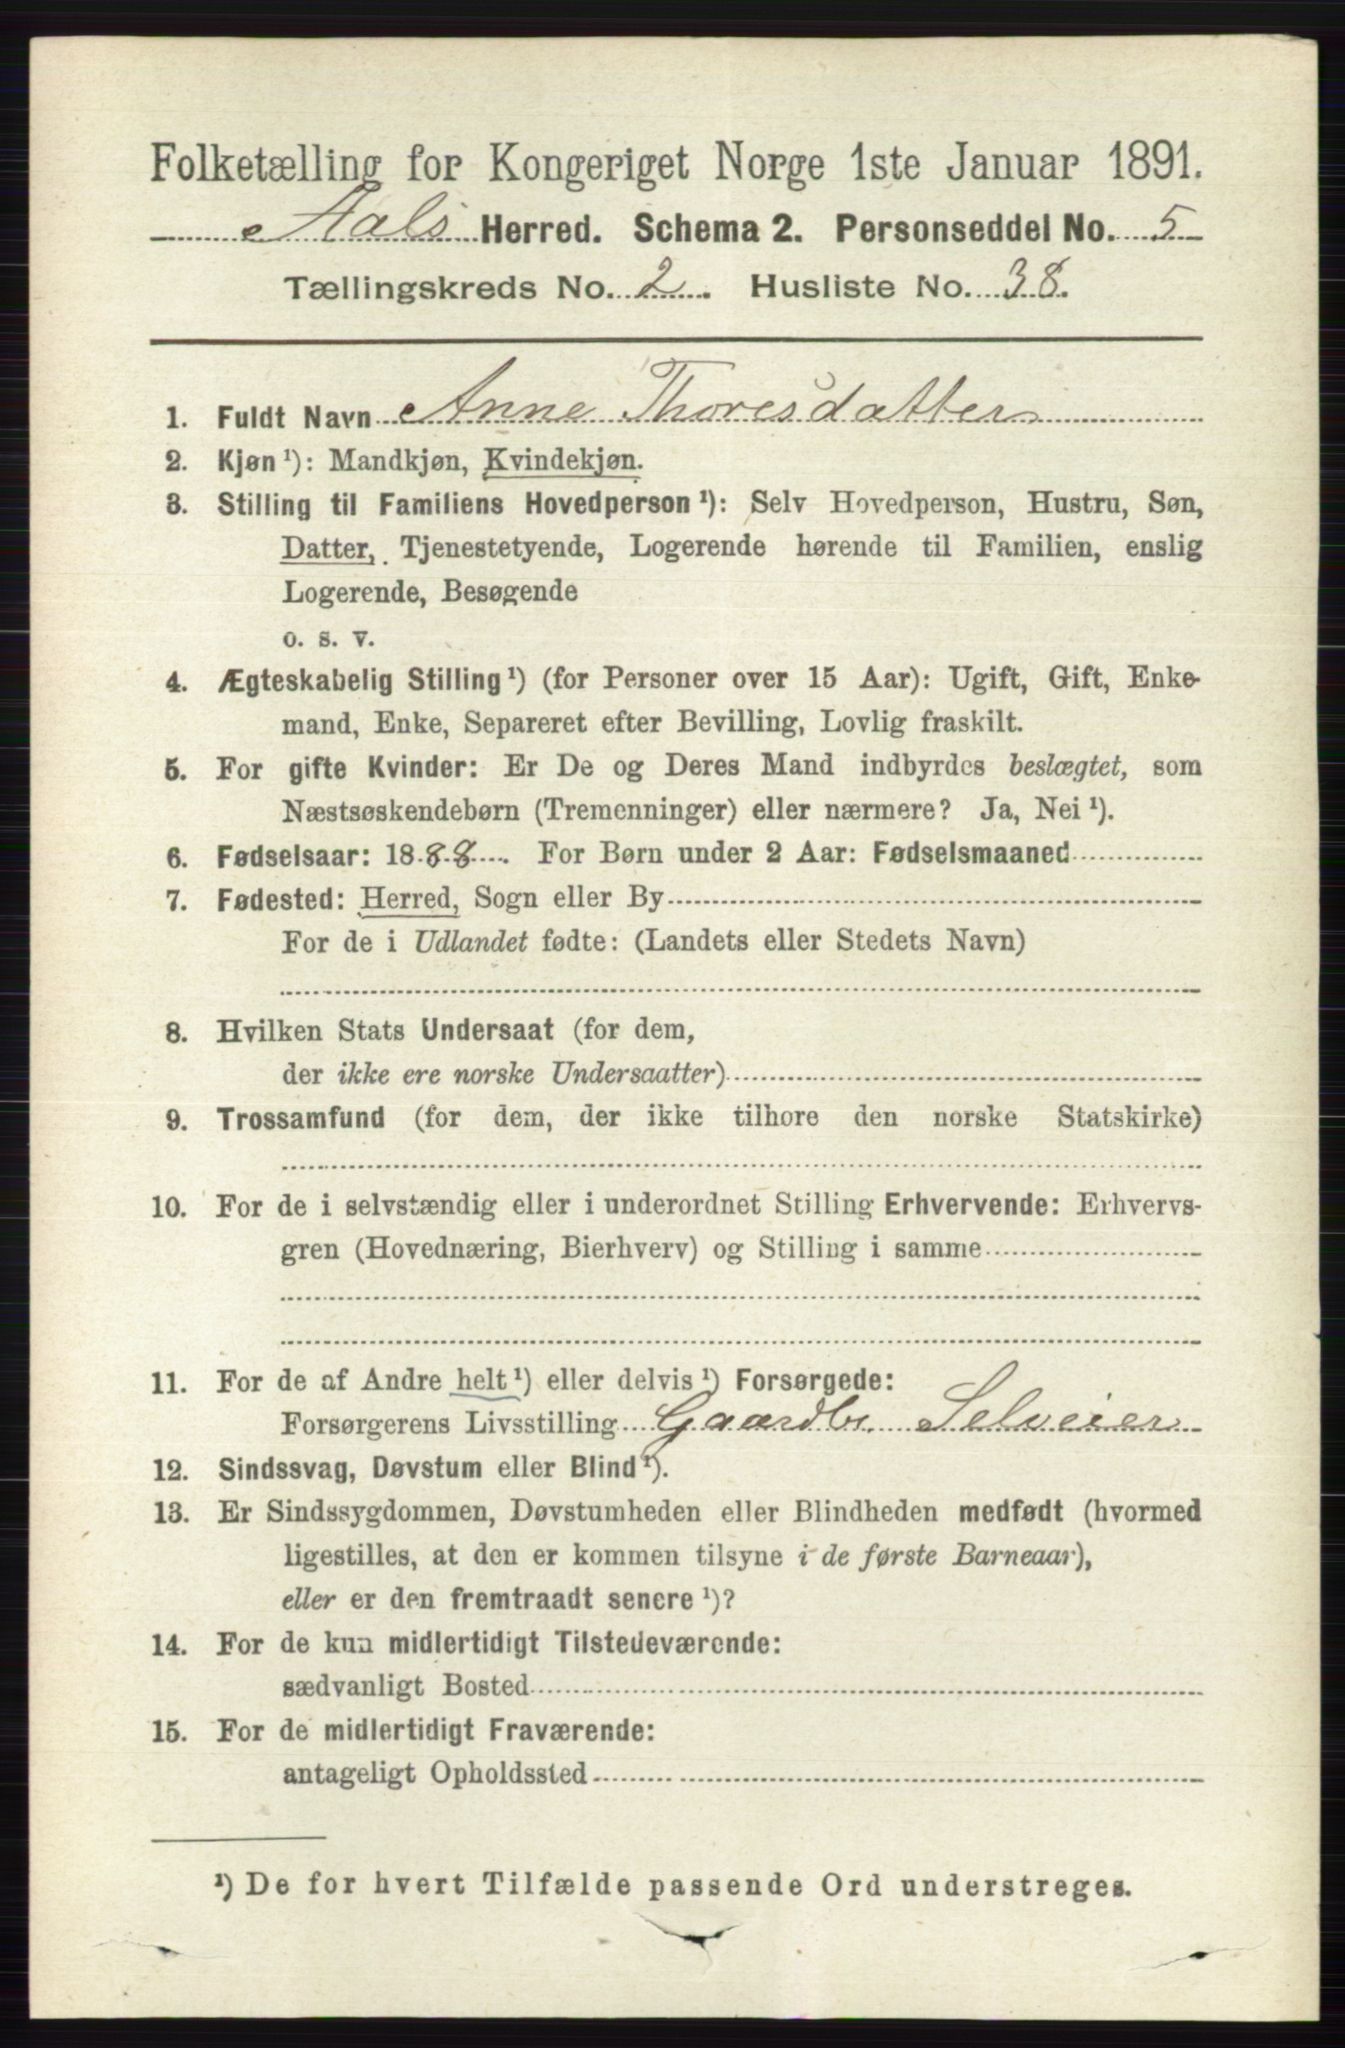 Folketælling for Kongeriget Norge 1ste Januar 1891.
Aals Herred. Schema 2. Personseddel No. 5
Tællingskreds No. 2. Husliste No. 38.
1. Fuldt Navn Anne Thoresdatter
2. Kjøn ¹): Mandkjøn, Kvindekjøn.
3. Stilling til Familiens Hovedperson ¹): Selv Hovedperson, Hustru, Søn,
Datter, Tjenestetyende, Logerende hørende til Familien, enslig
Logerende, Besøgende
o. s. v.
4. Ægteskabelig Stilling ¹) (for Personer over 15 Aar): Ugift, Gift, Enke-
mand, Enke, Separeret efter Bevilling, Lovlig fraskilt.
5. For gifte Kvinder: Er De og Deres Mand indbyrdes beslægtet, som
Næstsøskendebørn (Tremenninger) eller nærmere? Ja, Nei ¹).
6. Fødselsaar: 1888. For Børn under 2 Aar: Fødselsmaaned
7. Fødested: Herred, Sogn eller By
For de i Udlandet fødte: (Landets eller Stedets Navn)
8. Hvilken Stats Undersaat (for dem,
der ikke ere norske Undersaatter)
9. Trossamfund (for dem, der ikke tilhøre den norske Statskirke)
10. For de i selvstændig eller i underordnet Stilling Erhvervende: Erhvervs-
gren (Hovednæring, Bierhverv) og Stilling i samme
11. For de af Andre helt ¹) eller delvis ¹) Forsørgede:
Forsørgerens Livsstilling Gaardbr. Selveier
12. Sindssvag, Døvstum eller Blind ¹).
13. Er Sindssygdommen, Døvstumheden eller Blindheden medfødt (hvormed
ligestilles, at den er kommen tilsyne i de første Barneaar),
eller er den fremtraadt senere ¹)?
14. For de kun midlertidigt Tilstedeværende:
sædvanligt Bosted
15. For de midlertidigt Fraværende:
antageligt Opholdssted
¹) De for hvert Tilfælde passende Ord understreges.